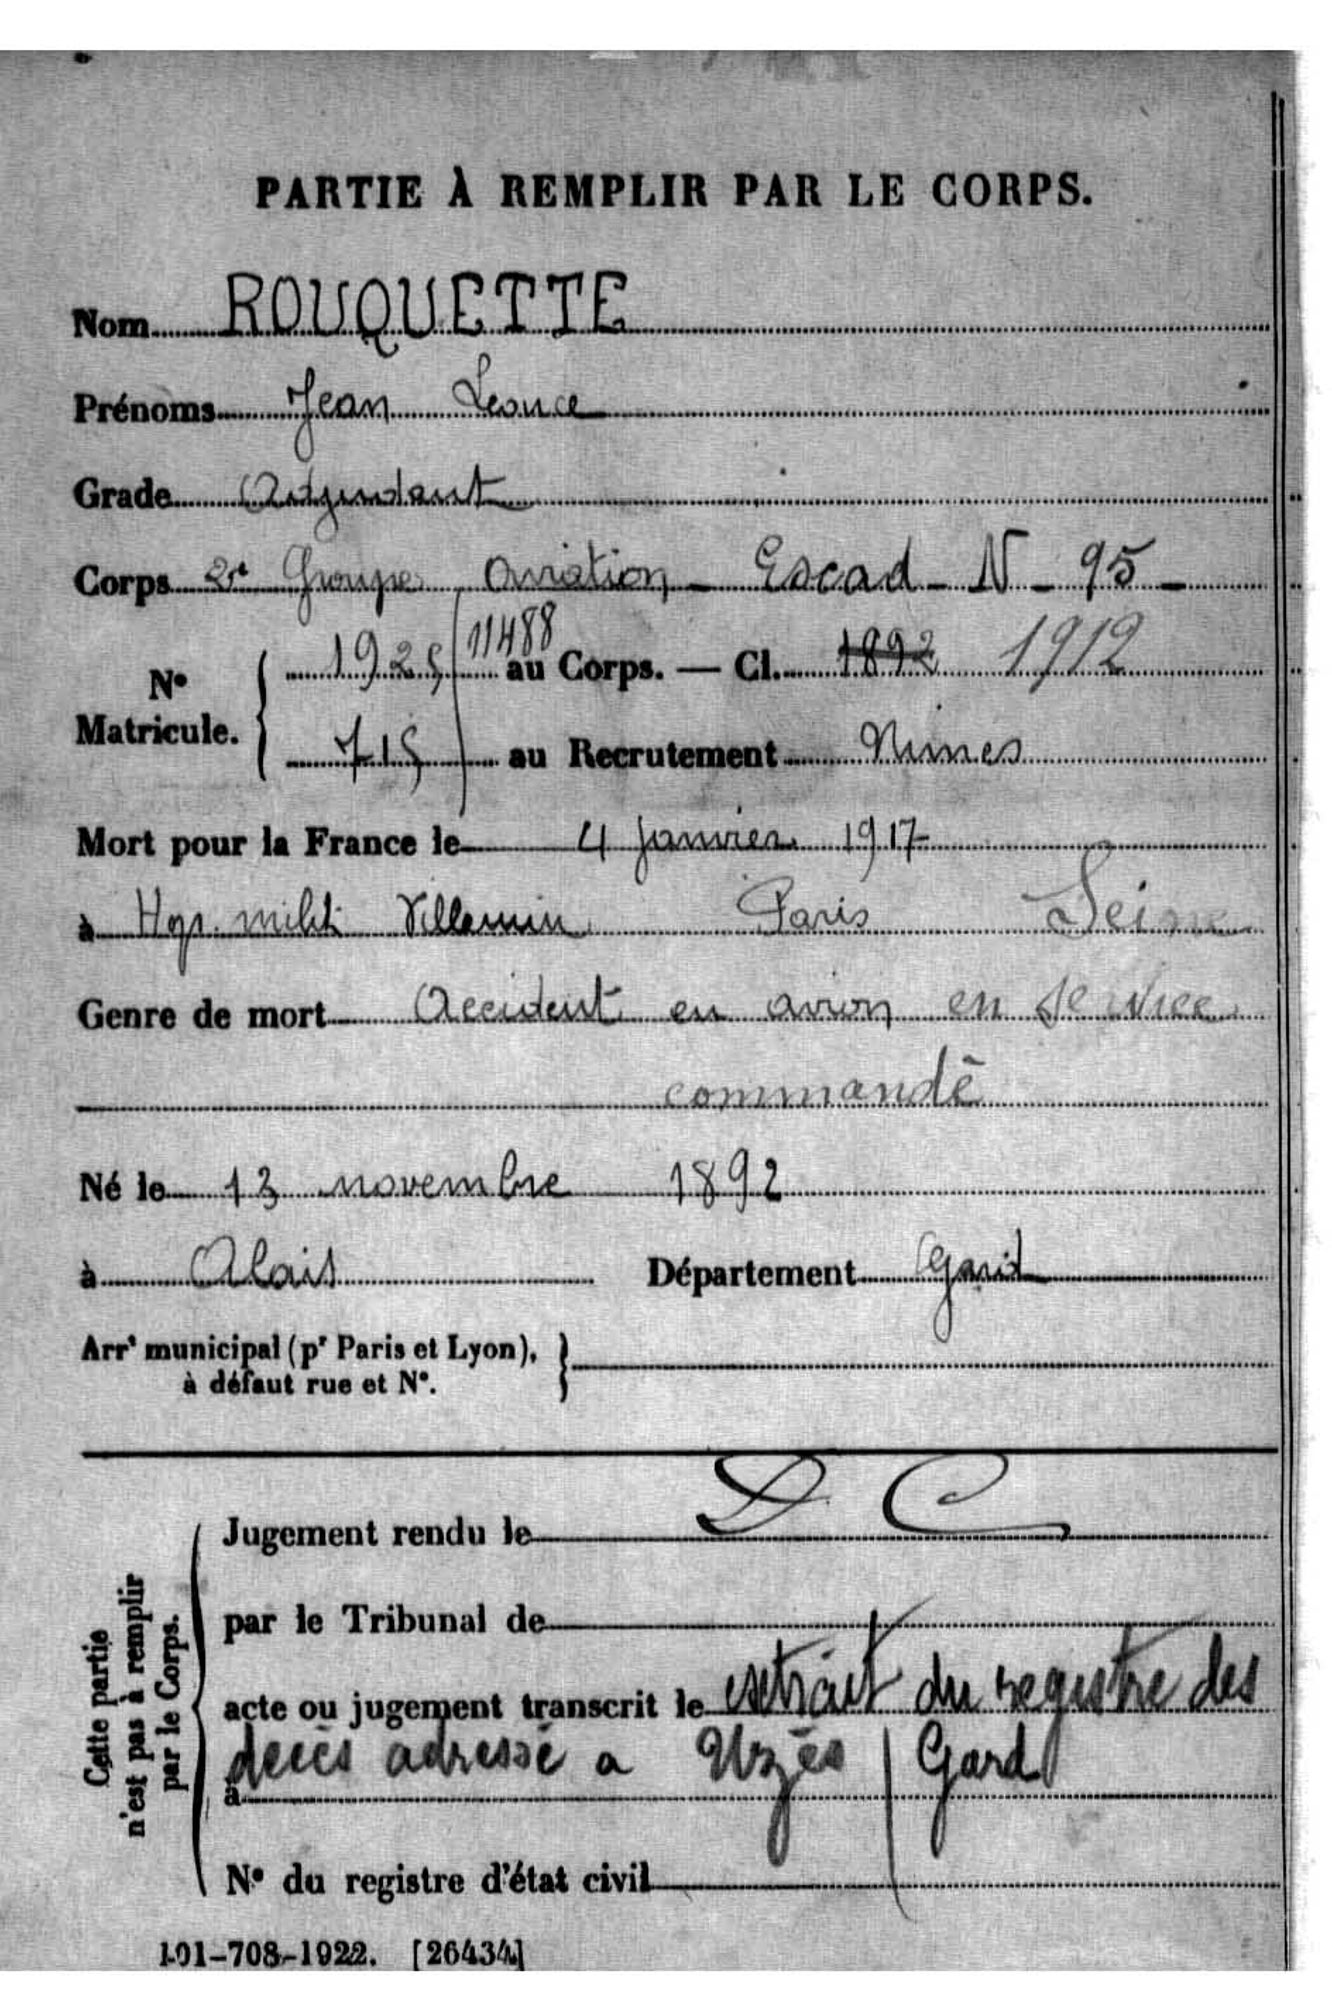 PARTIE À REMPLIR PAR LE CORPS.
Nom ROUQUETTE
Prénoms Jean Leonce
Grade Adjudant
Corps 2e Groupe Aviation - Escad - N - 95 -
N° Matricule. 1925 11488 au Corps. — Cl. 1892 1912
715 au Recrutement Nimes
Mort pour la France le 4 Janvier 1917
à Hop. milit Villemin Paris Seine
Genre de mort Accident en avion en service
commandé
Né le 13 novembre 1892
à Alais Département Gard
Arrt municipal (pr Paris et Lyon),
à défaut rue et N°.
Cette partie
n'est pas à remplir
par le Corps.
Jugement rendu le D C
par le Tribunal de
acte ou jugement transcrit le extrait du registre des
à décès adressé a Uzès / Gard
N° du registre d'état civil
101-708-1922. [26434]